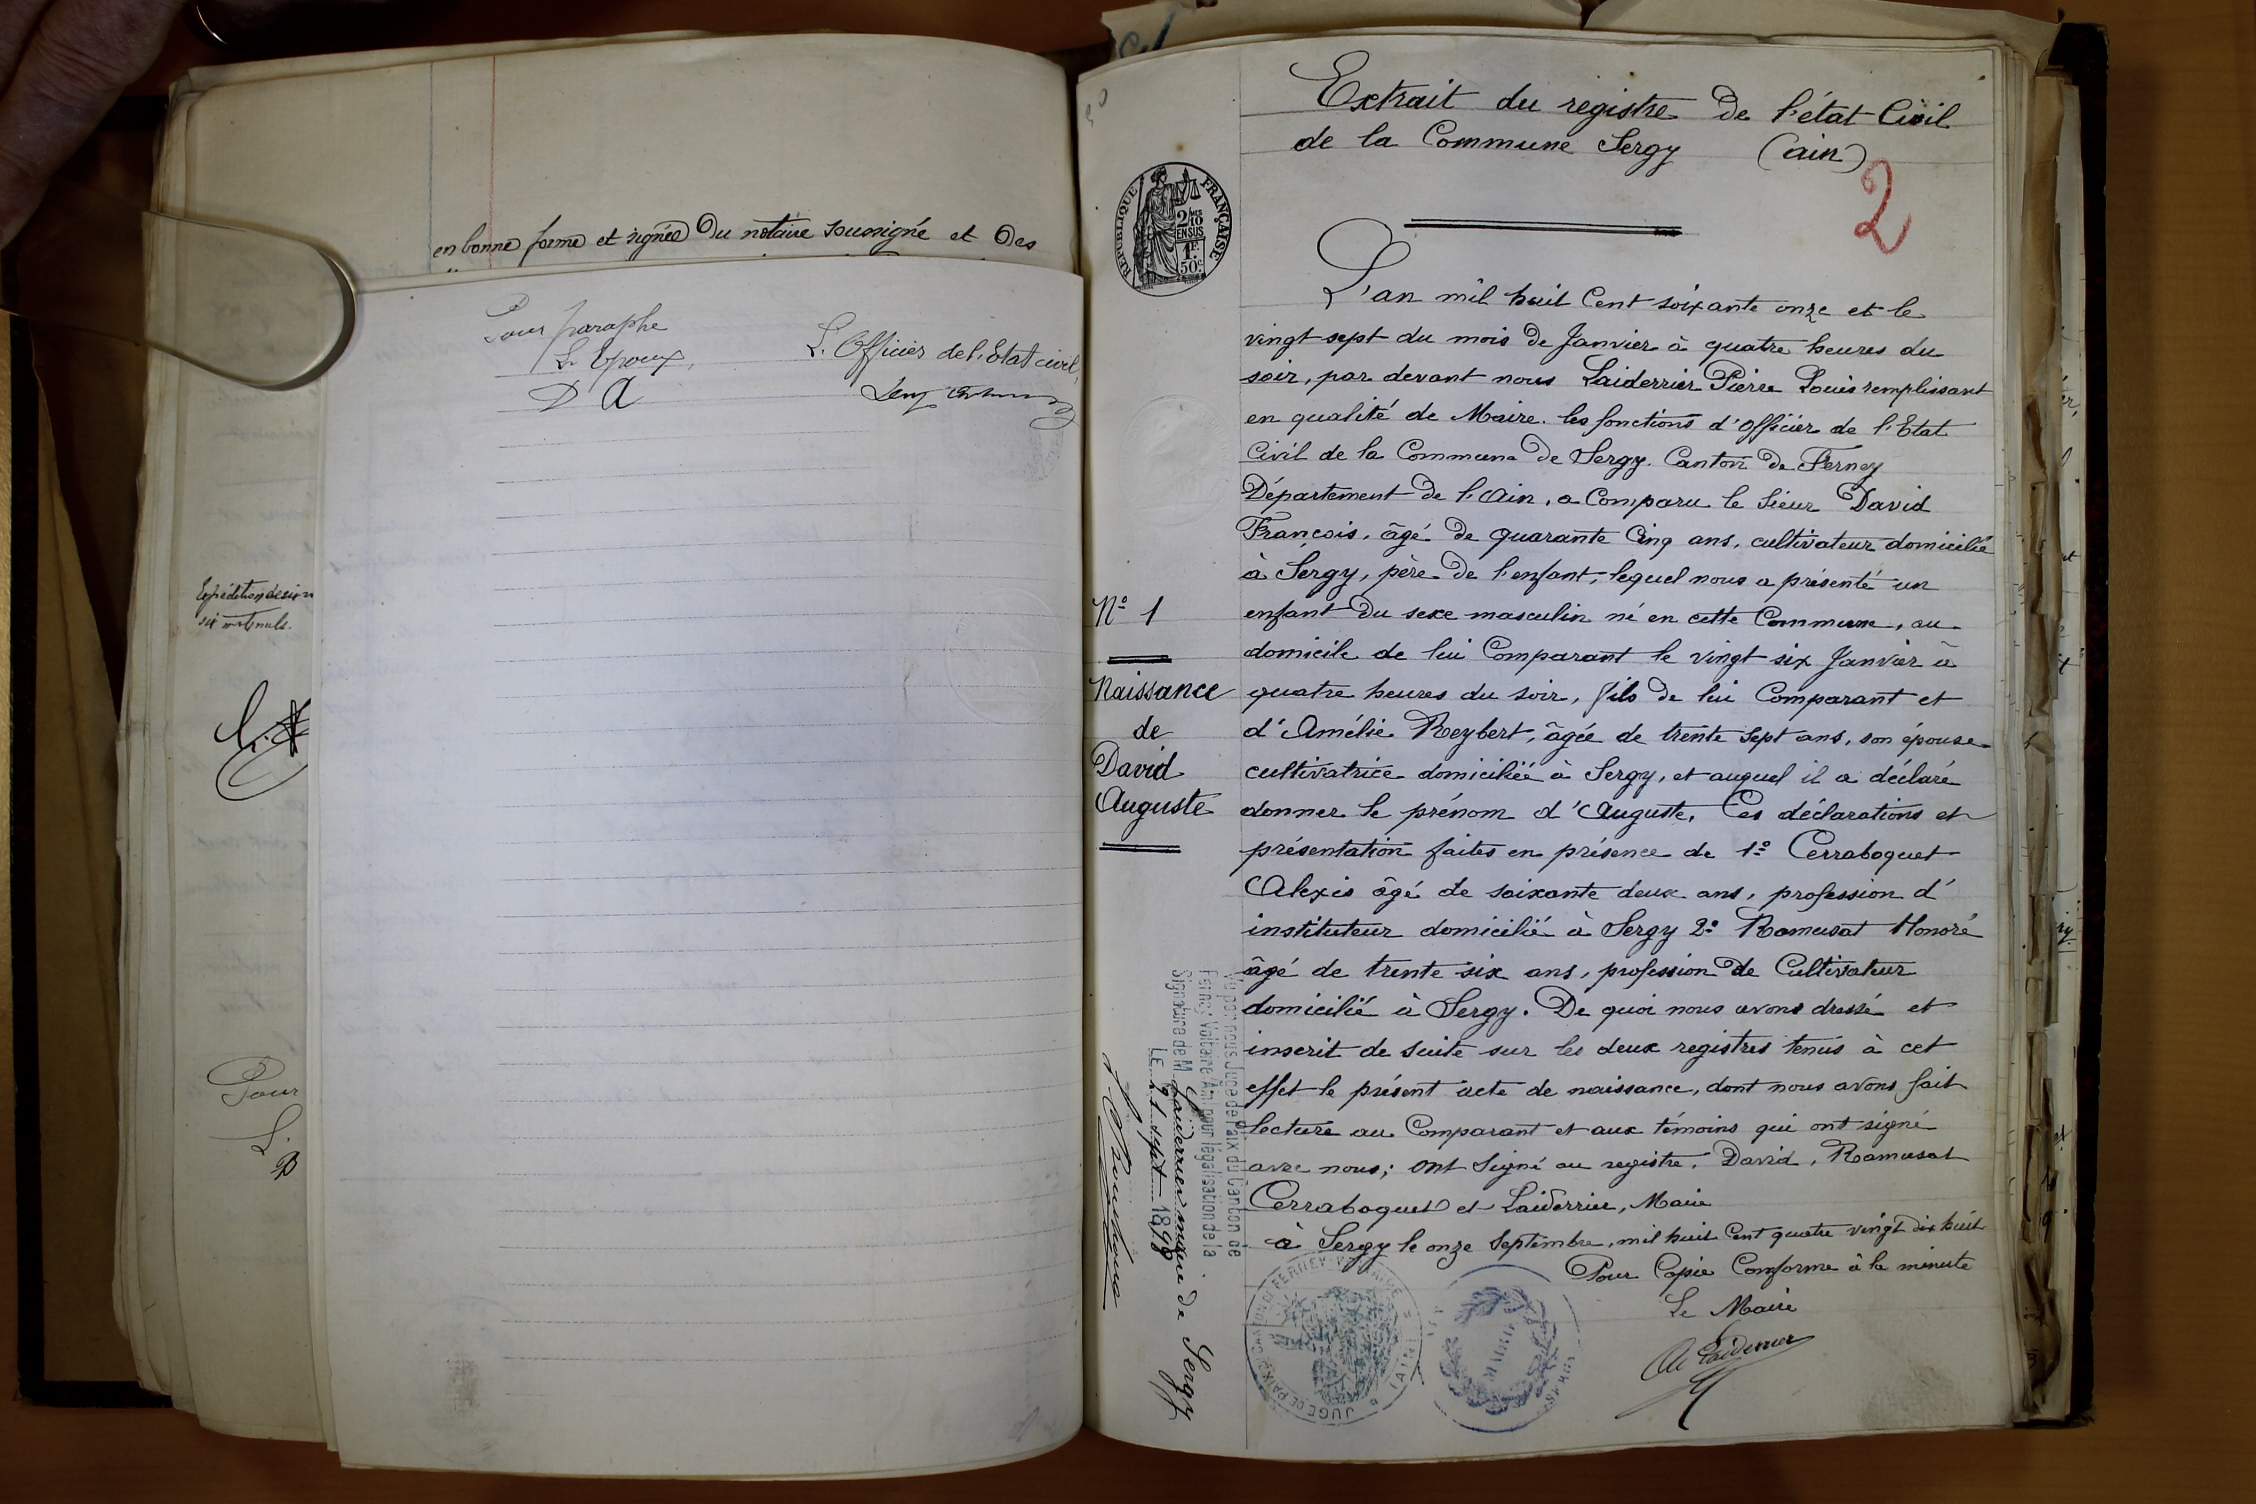 en bonne forme et signée Du notaire soussigné et Des
Pour paraphe
L. Epoux,
D A
L. Officier de l'Etat civil,
six mots nuls.
Pour
L.
Extrait du registre De l'état-Civil
de la Commune Sergy (ain)
2
RÉPUBLIQUE FRANÇAISE
2/10
EN SUS
1F.
50c.
L'an mil huit Cent soixante onze et le
vingt-sept du mois de Janvier à quatre heures du
soir, par devant nous Laiderrier Pierre Louis remplissant
en qualité de Maire. les fonctions d'officier de l'Etat
Civil de la Commune De Sergy. Canton De Ferney
Département De l'Ain, a Comparu le Sieur David
François, âgé De quarante Cinq ans, cultivateur domicilié
à Sergy, père De l'enfant, lequel nous a présenté un
enfant Du sexe masculin né en cette Commune, au
domicile de lui Comparant le vingt six Janvier à
quatre heures du soir, fils De lui Comparant et
d'Amélie Reybert, âgée de trente sept ans, son épouse
cultivatrice domiciliée à Sergy, et auquel il a déclaré
donner le prénom d'Auguste, Ces déclarations et
présentation faites en présence de 1º Cerraboquet
Alexis âgé de soixante deux ans, profession d'
instituteur domicilié à Sergy 2º Ramusat Honoré
âgé de trente six ans, profession De Cultivateur
domicilié à Sergy. De quoi nous avons dressé et
inscrit de suite sur les deux registres tenus à cet
effet le présent acte de naissance, dont nous avons fait
lecture au Comparant et aux témoins qui ont signé
avec nous; ont Signé au registre. David, Ramusat
Cerraboquet et Laiderrier, Maire
à Sergy le onze Septembre, mil huit Cent quatre vingt dix huit
Pour Copie Conforme à la minute
Le Maire
Laiderrier
Nº 1
Naissance
de
David
Auguste
Vu par nous Juge de Paix du Canton de
Ferney Voltaire Ain pour légalisation de la
Signature de M. Laiderrier maire de Sergy
LE 21 sept 1898
JUGE DE PAIX DU CANTON DE FERNEY-VOLTAIRE (AIN)
MAIRIE